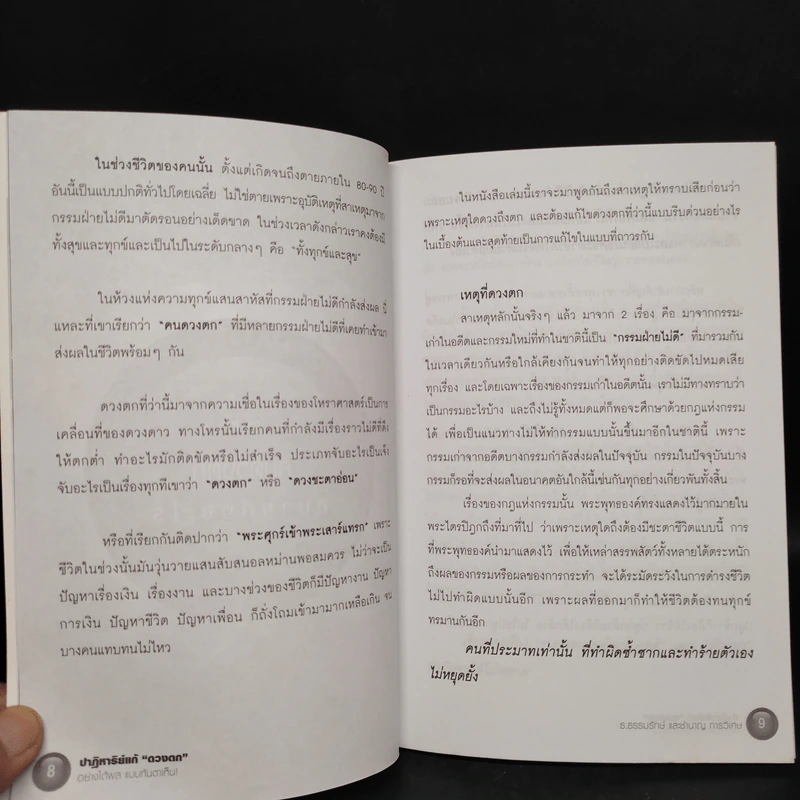 ในช่วงชีวิตของคนนั้น ตั้งแต่เกิดจนถึงตายภายใน 80-90 ปี
อันนี้เป็นแบบปกติทั่วไปโดยเฉลี่ย ไม่ใช่ตายเพราะอุบัติเหตุที่สาเหตุมาจาก
กรรมฝ่ายไม่ดีมาตัดรอนอย่างเด็ดขาด ในช่วงเวลาดังกล่าวเราคงต้องมี
ทั้งสุขและทุกข์และเป็นไปในระดับกลางๆ คือ "ทั้งทุกข์และสุข"
ในห้วงแห่งความทุกข์แสนสาหัสที่กรรมฝ่ายไม่ดีกำลังส่งผล นี่
แหละที่เขาเรียกว่า "คนดวงตก" ที่มีหลายกรรมฝ่ายไม่ดีที่เคยทำเข้ามา
ส่งผลในชีวิตพร้อมๆ กัน
ดวงตกที่ว่านี้มาจากความเชื่อในเรื่องของโหราศาสตร์เป็นการ
เคลื่อนที่ของดวงดาว ทางโหรนั้นเรียกคนที่กำลังมีเรื่องราวไม่ดีที่ดึง
ให้ตกต่ำ ทำอะไรมักติดขัดหรือไม่สำเร็จ ประเภทจับอะไรเป็นเจ๊ง
จับอะไรเป็นเรื่องทุกทีเขาว่า "ดวงตก" หรือ "ดวงชะตาอ่อน"
หรือที่เรียกกันติดปากว่า "พระศุกร์เข้าพระเสาร์แทรก" เพราะ
ชีวิตในช่วงนั้นมันวุ่นวายแสนสับสนอลหม่านพอสมควร ไม่ว่าจะเป็น
ปัญหาเรื่องเงิน เรื่องงาน และบางช่วงของชีวิตก็มีปัญหางาน ปัญหา
การเงิน ปัญหาชีวิต ปัญหาเพื่อน ก็ถั่งโถมเข้ามามากเหลือเกิน จน
บางคนแทบทนไม่ไหว
8
ปาฏิหาริย์แก้ "ดวงตก"
อย่างได้ผล แบบทันตาเห็น!
ในหนังสือเล่มนี้เราจะมาพูดกันถึงสาเหตุให้ทราบเสียก่อนว่า
เพราะเหตุใดดวงถึงตก และต้องแก้ไขดวงตกที่ว่านี้แบบรีบด่วนอย่างไร
ในเบื้องต้นและสุดท้ายเป็นการแก้ไขในแบบที่ถาวรกัน
เหตุที่ดวงตก
สาเหตุหลักนั้นจริงๆ แล้ว มาจาก 2 เรื่อง คือ มาจากกรรม-
เก่าในอดีตและกรรมใหม่ที่ทำในชาตินี้เป็น "กรรมฝ่ายไม่ดี" ที่มารวมกัน
ในเวลาเดียวกันหรือใกล้เคียงกันจนทำให้ทุกอย่างติดขัดไปหมดเสีย
ทุกเรื่อง และโดยเฉพาะเรื่องของกรรมเก่าในอดีตนั้น เราไม่มีทางทราบว่า
เป็นกรรมอะไรบ้าง และถึงไม่รู้ทั้งหมดแต่ก็พอจะศึกษาด้วยกฎแห่งกรรม
ได้ เพื่อเป็นแนวทางไม่ให้ทำกรรมแบบนั้นขึ้นมาอีกในชาตินี้ เพราะ
กรรมเก่าจากอดีตบางกรรมกำลังส่งผลในปัจจุบัน กรรมในปัจจุบันบาง
กรรมก็รอที่จะส่งผลในอนาคตอันใกล้นี้เช่นกันทุกอย่างเกี่ยวพันทั้งสิ้น
เรื่องของกฎแห่งกรรมนั้น พระพุทธองค์ทรงแสดงไว้มากมายใน
พระไตรปิฎกถึงที่มาที่ไป ว่าเพราะเหตุใดถึงต้องมีชะตาชีวิตแบบนี้ การ
ที่พระพุทธองค์นำมาแสดงไว้ เพื่อให้เหล่าสรรพสัตว์ทั้งหลายได้ตระหนัก
ถึงผลของกรรมหรือผลของการกระทำ จะได้ระมัดระวังในการดำรงชีวิต
ไม่ไปทำผิดแบบนั้นอีก เพราะผลที่ออกมาก็ทำให้ชีวิตต้องทนทุกข์
ทรมานกันอีก
คนที่ประมาทเท่านั้น ที่ทำผิดซ้ำซากและทำร้ายตัวเอง
ไม่หยุดยั้ง
ร.ธรรมรักษ์ และชำนาญ การวิเศษ
9